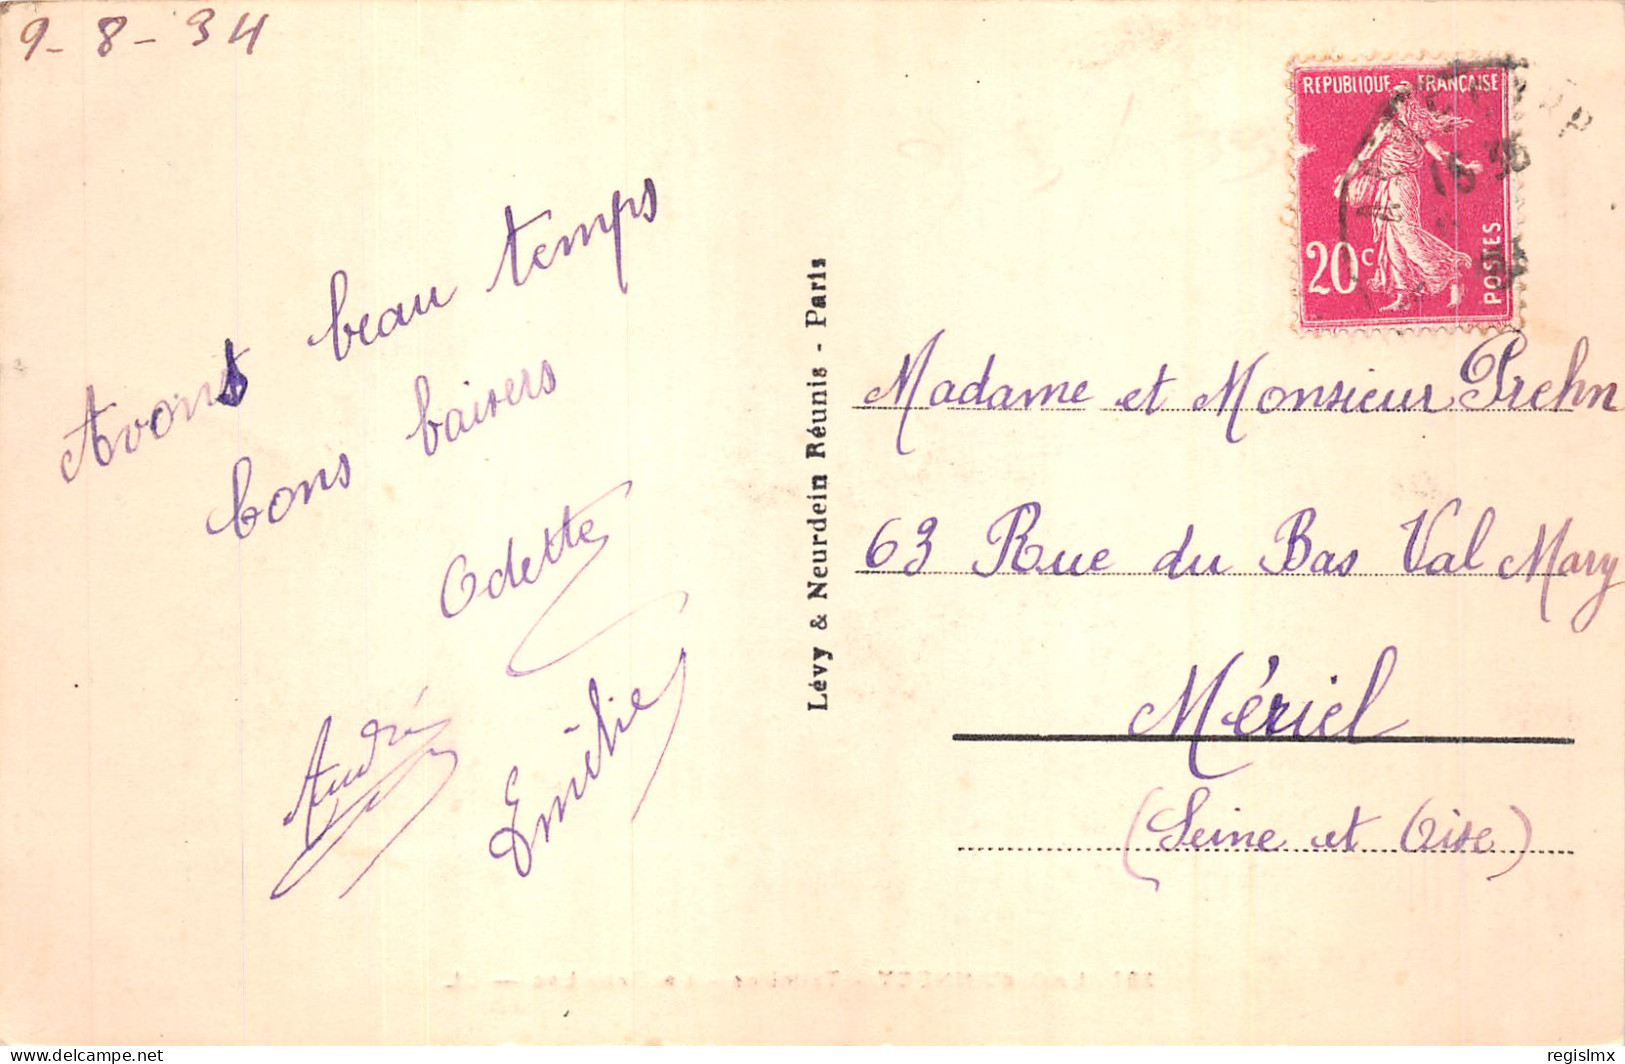 9-8-34
Avons beau temps
bons baisers
Odette
André
Emélie
Lévy & Neurdein Réunis - Paris
REPUBLIQUE FRANÇAISE
20c
POSTES
15 30
Madame et Monsieur Prehn
63 Rue du Bas Val Mary
Mériel
(Seine et Oise)
delcampe.net
regislmx